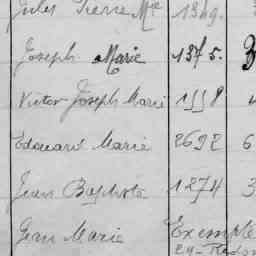 Jules Pierre Mie 1349.
Joseph Marie 1375. 3
Victor Joseph Marie 1558
Edouard Marie 2692 6
Jean Baptiste 1274 3
Jean Marie Exempté